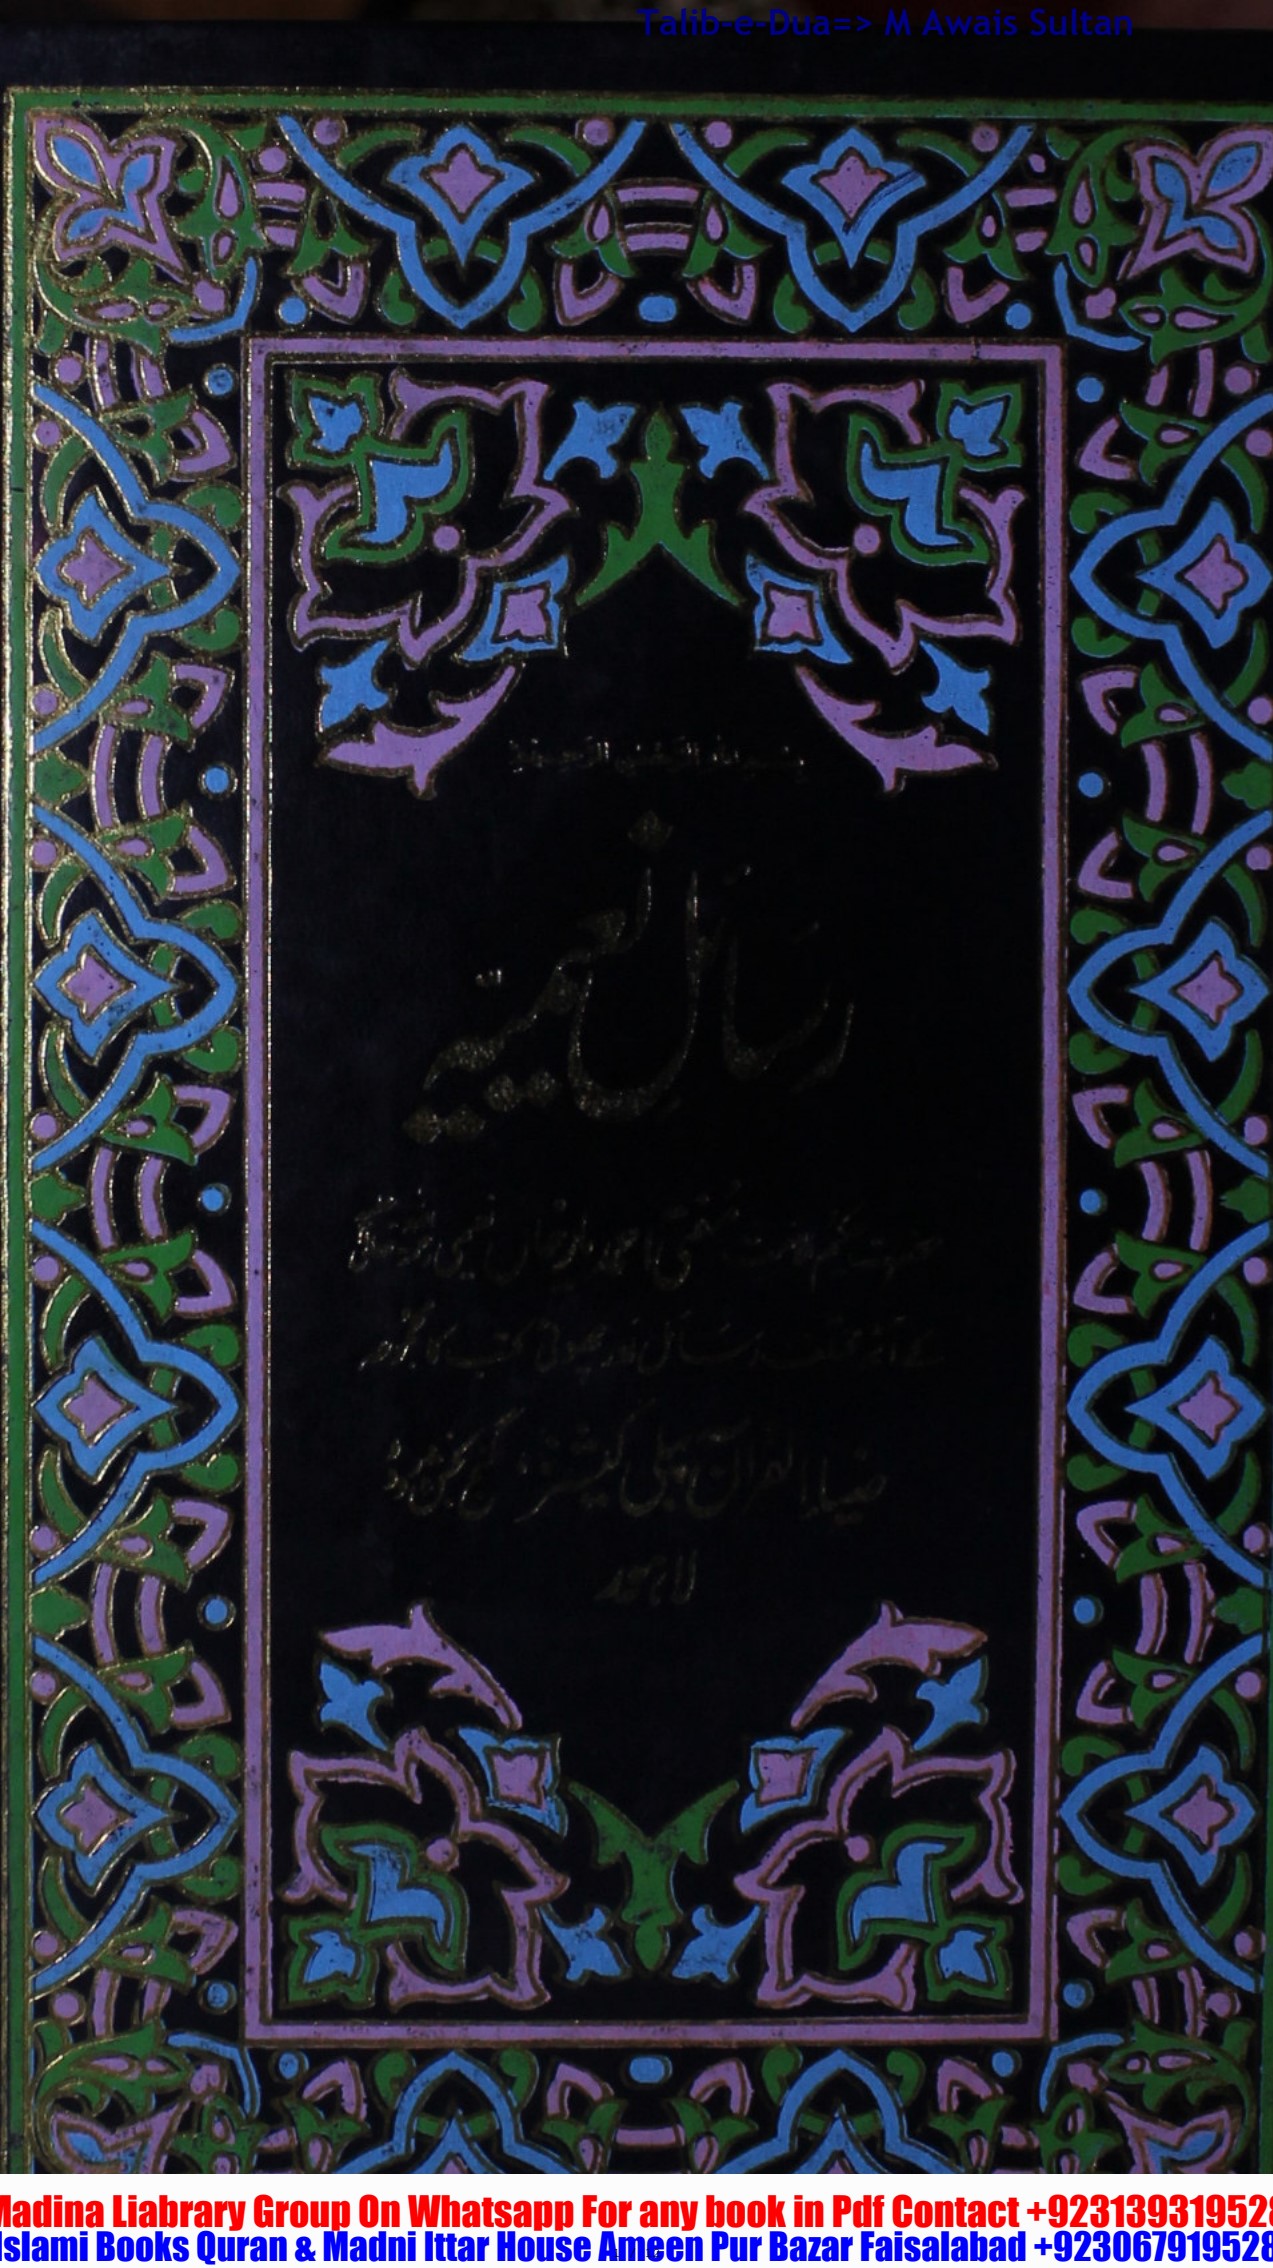 Talib-e-Dua=> M Awais Sultan
بسم اللہ الرحمن الرحیم
رسائل نعیمیہ
حکیم الامت مفتی احمد یار خان نعیمی
مختلف رسائل اور چھوٹی کتب کا مجموعہ
ضیاء القرآن پبلی کیشنز، گنج بخش روڈ
لاہور
Madina Liabrary Group On Whatsapp For any book in Pdf Contact +923139319528
Islami Books Quran & Madni Ittar House Ameen Pur Bazar Faisalabad +923067919528